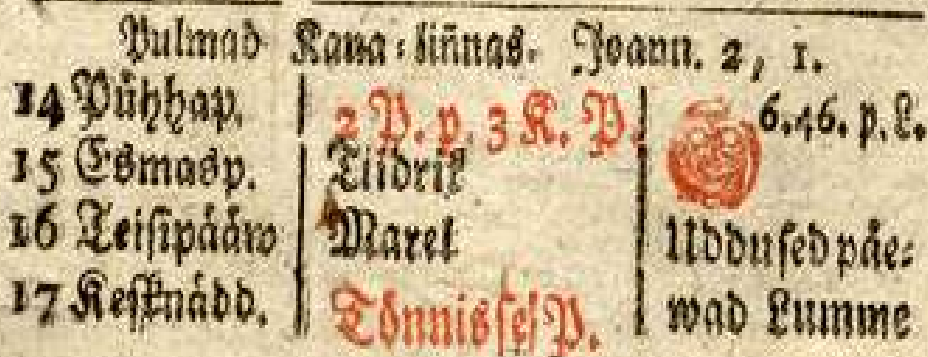 Pulmad Kana-liñnas. Joann. 2, 1.
14 Pühhap. 2 P. p. 3 K. P. 6. 46. p. L.
15 Esmasp. Tiidrik
16 Teisipääw Maret Uddused päe-
17 Kesknädd. Tönnisse P. wad Lumme